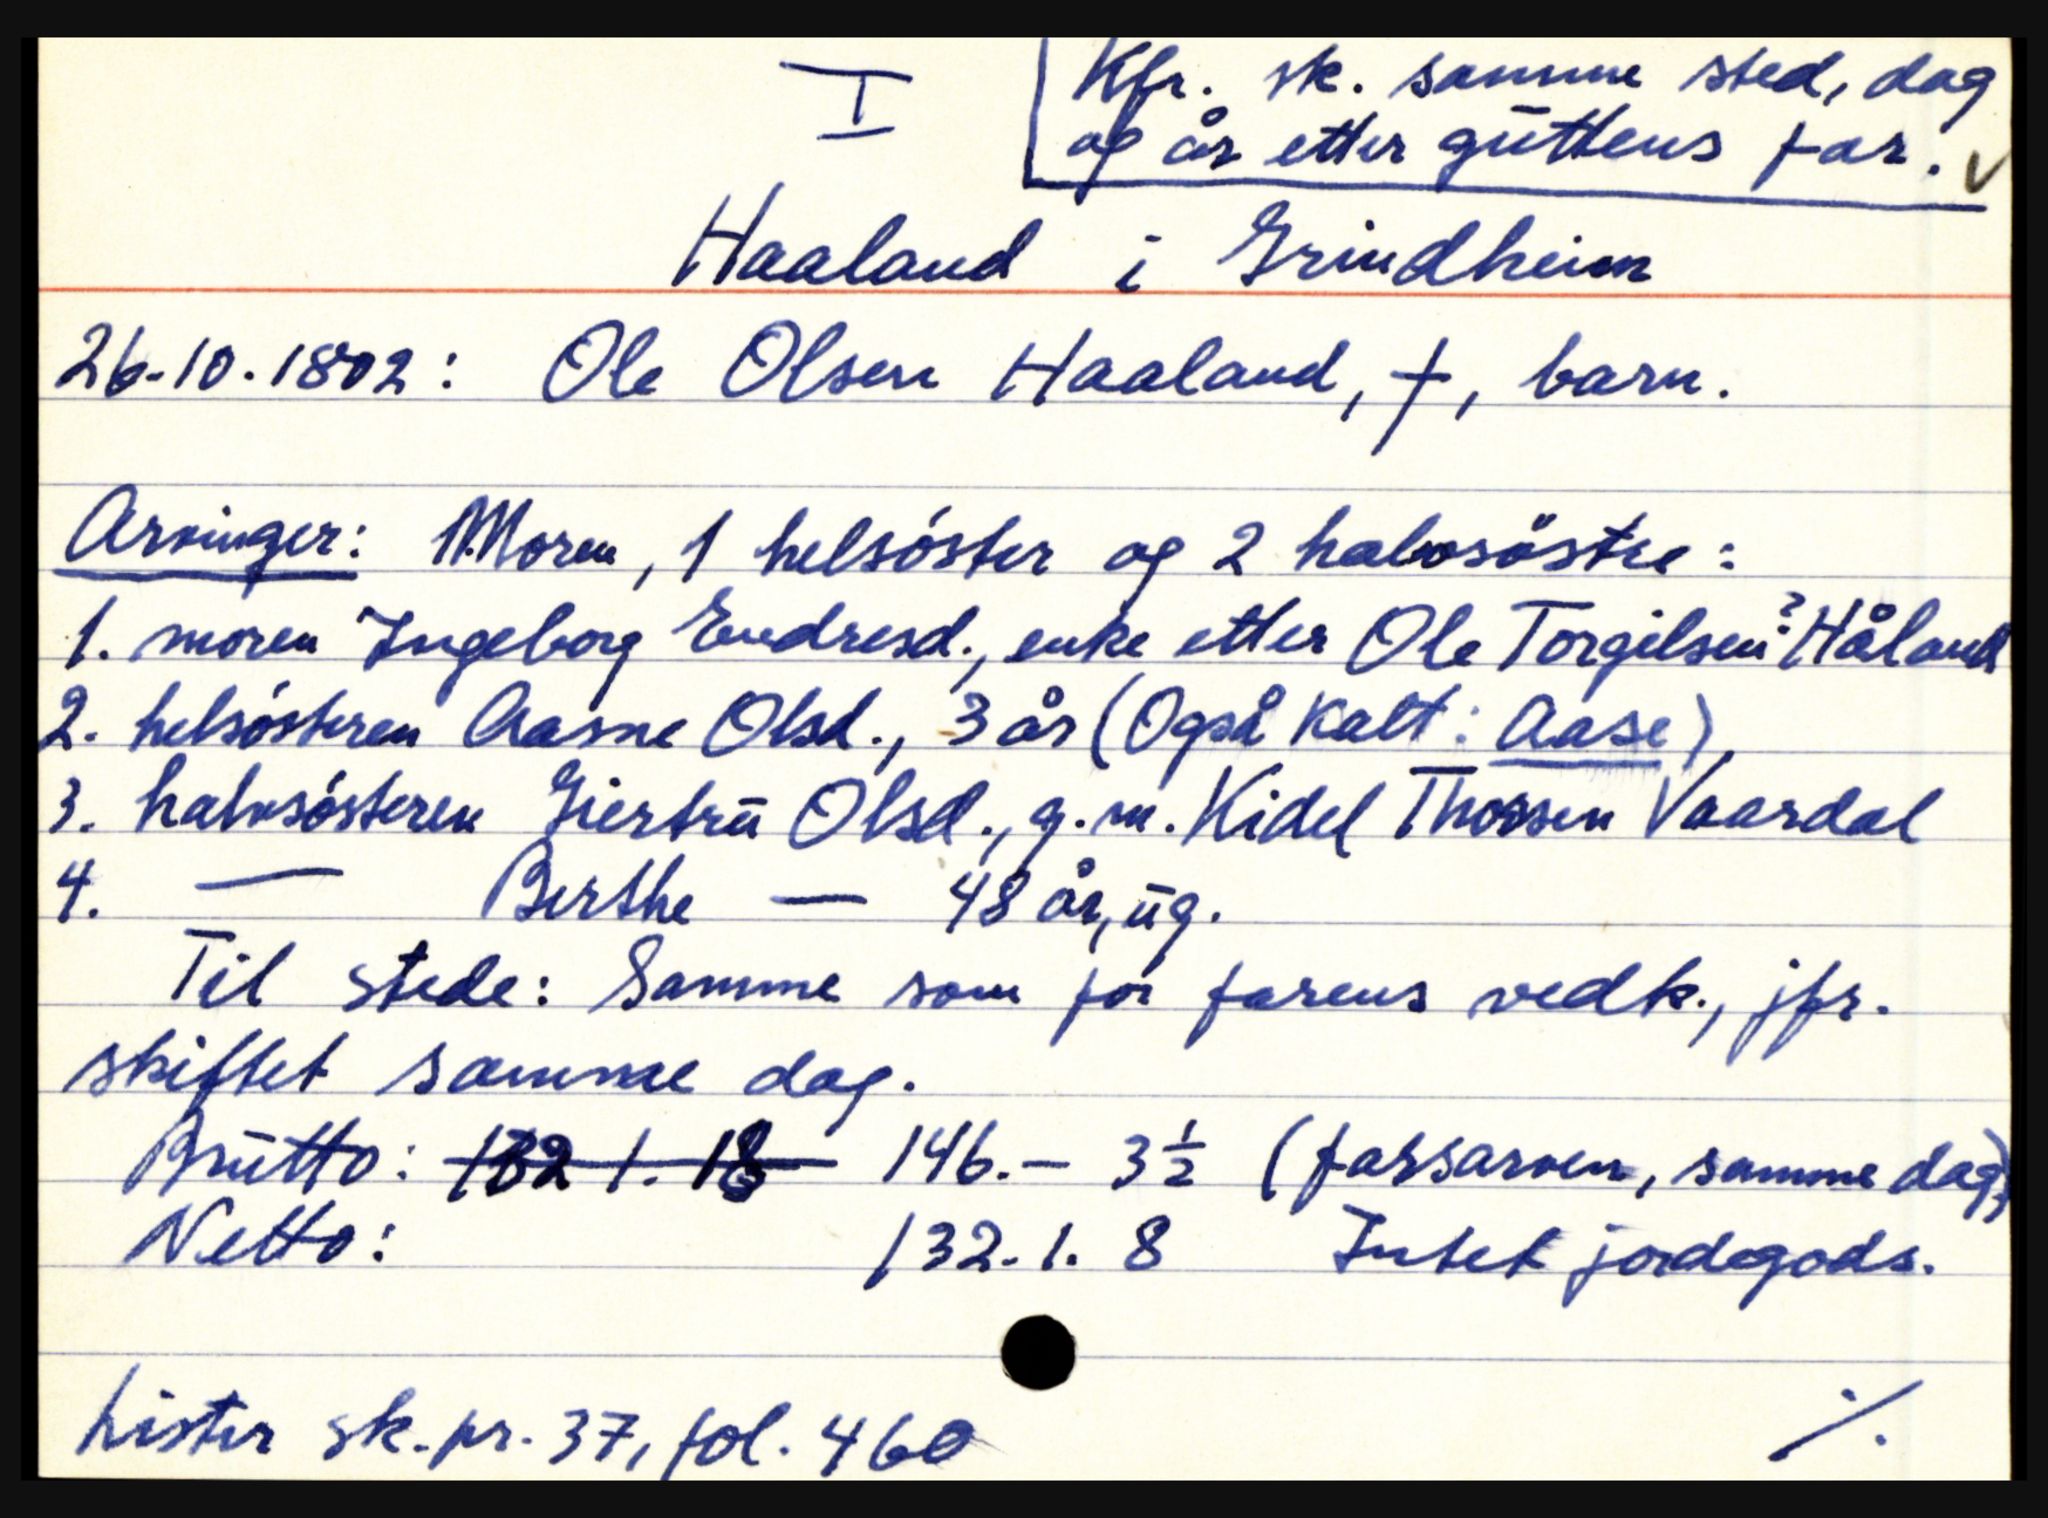 I
Kfr. sk. samme sted, dag
og år etter guttens far. v
Haaland i Grindheim
26.10.1802: Ole Olsen Haaland, †, barn.
Arvinger: Moren, 1 helsöster og 2 halvsöstre:
1. moren Ingeborg Endresd., enke etter Ole Torgilsen? Håland
2. helsösteren Aasne Olsd., 3 år (Også kalt: Aase)
3. halvsösteren Giertru Olsd., g.m. Kidel Thorsen Vaardal
4. — Berthe — 48 år, ug.
Til stede: Samme som for farens vedk., jfr.
skiftet samme dag.
Brutto: 132 1. 18 146.— 3½ (farsarven, samme dag)
Netto: 132. 1. 8 Intet jordegods.
Lister sk.pr. 37, fol. 460
./.